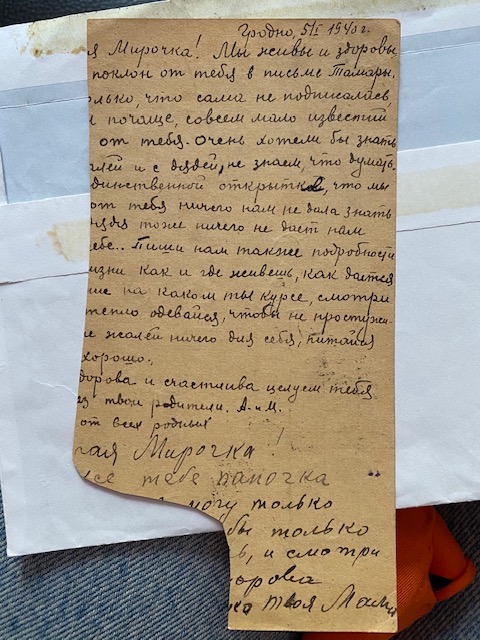 Гродно, 5/I 1940 г.
я Мирочка! Мы живы и здоровы
поклон от тебя в письме Тамары.
олько, что сама не подписалась,
и почаще, совсем мало известий
от тебя. Очень хотели бы знать
алей и с дядей, не знаем, что думать.
динственной открытков, что мы
от тебя ничего нам не дала знать
дядя тоже ничего не дает нам
ебе.. Пиши нам также подробности
изни как и где живешь, как дается
ие на каком ты курсе, смотри
тепло одевайся, чтобы не простужи-
е жалей ничего для себя, питайся
хорошо.
дорова и счастлива целуем тебя
аз твои родители. А. и М.
от всех родных
гая Мирочка!
се тебе папочка
могу только
бы только
ь, и смотри
орова
ка твоя Мама